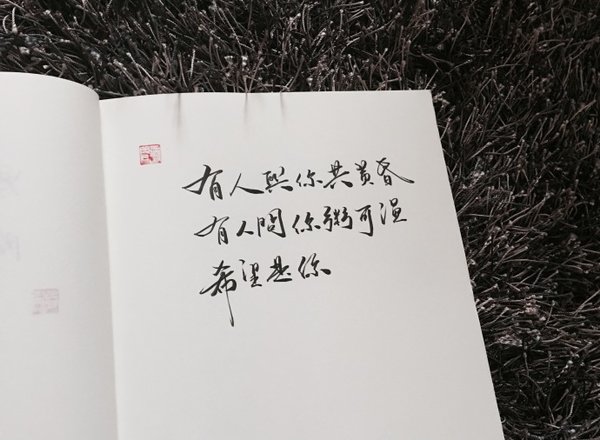 有人與你共黄昏
有人問你粥可温
希望是你